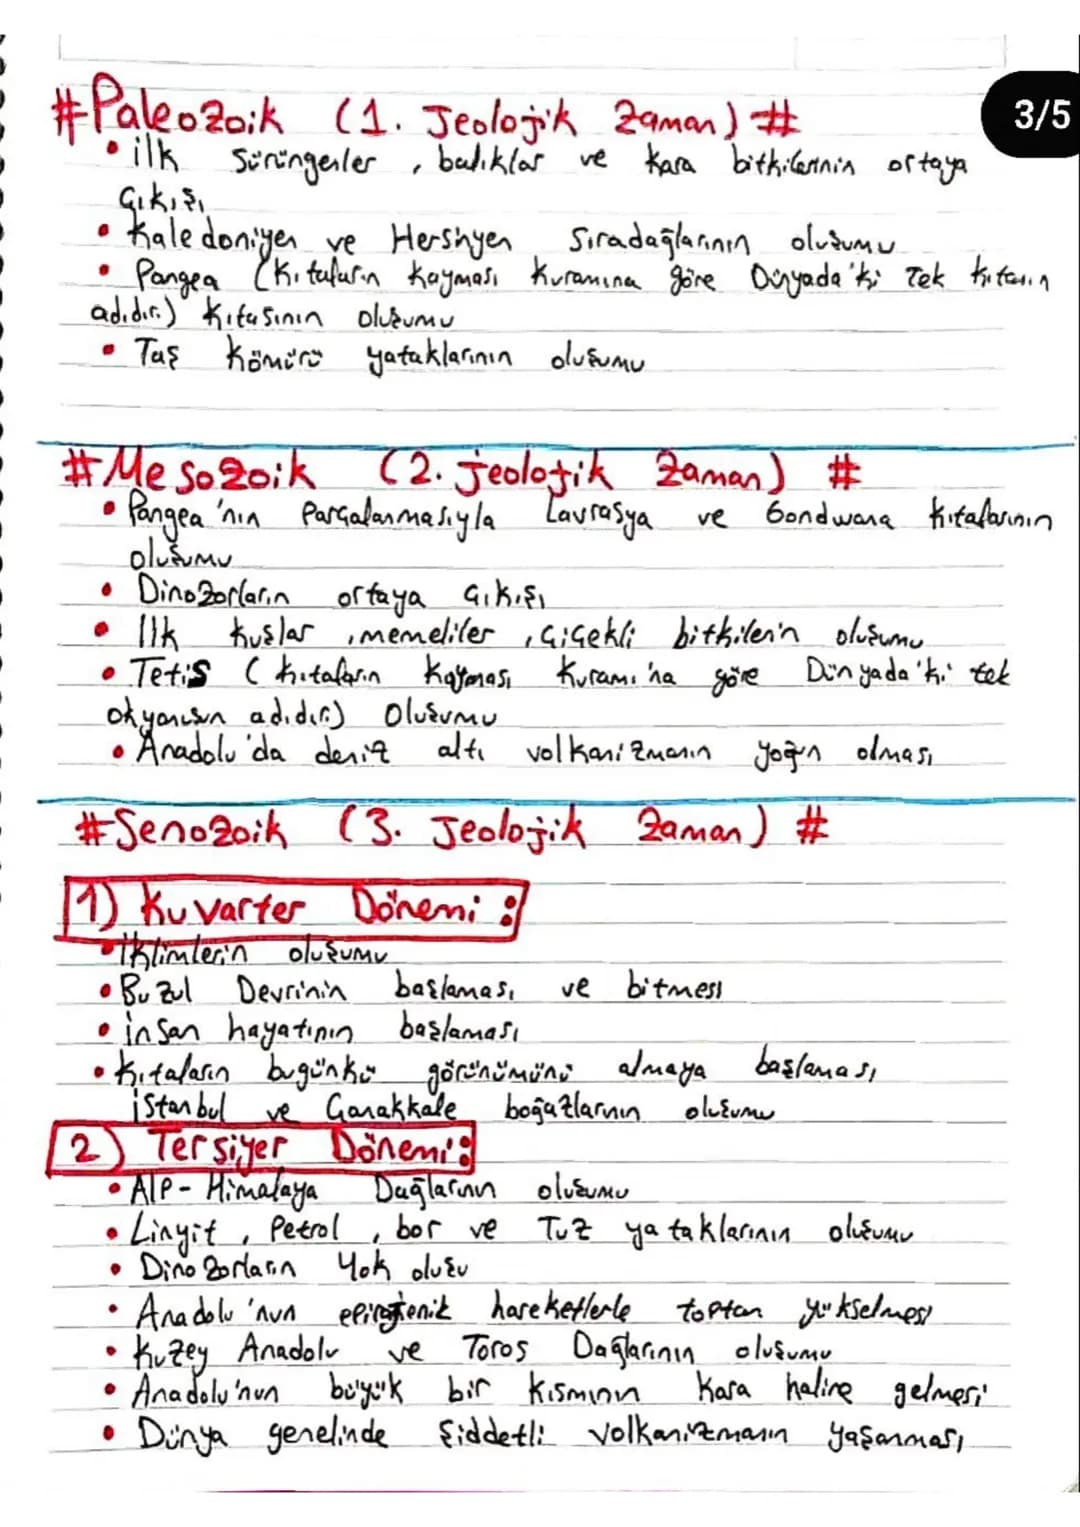 3/5
#Paleozoik (1. Jeolojik Zaman) #
• ilk Sürüngenler, balıklar ve kara bitkilerinin ortaya
Çıkışı
• Kaledoniyen ve Hersinyen Sıradağlarının oluşumu
• Pangea (Kıtaların Kayması Kuramına göre Dünyada'ki Tek kıtanın
adıdır.) Kıtasının oluşumu
• Taş Kömürü yataklarının oluşumu
#Mesozoik (2. Jeolojik Zaman) #
• Pangea'nın Parçalanmasıyla Lavrasya ve Gondwana kıtalarının
oluşumu
• Dinozorların ortaya çıkışı
• İlk kuşlar, memeliler, çiçekli bitkilerin oluşumu
• Tetis (kıtaların Kayması Kuramı'na göre Dünyada'ki tek
okyanusun adıdır.) Oluşumu
• Anadolu'da deniz altı volkanizmanın yoğun olması
#Senozoik (3. Jeolojik Zaman) #
1) Kuvarter Dönemi:
• İklimlerin oluşumu
• Buzul Devrinin başlaması ve bitmesi
• insan hayatının başlaması
• Kıtaların bugünkü görünümünü almaya başlaması
istanbul ve Çanakkale boğazlarının oluşumu
2) Tersiyer Dönemi:
• Alp-Himalaya Dağlarının oluşumu
• Linyit, Petrol, bor ve Tuz yataklarının oluşumu
• Dinozorların Yok oluşu
• Anadolu'nun epirojenik hareketlerle toptan yükselmesi
• Kuzey Anadolu ve Toros Dağlarının oluşumu
• Anadolu'nun büyük bir kısmının Kara haline gelmesi
• Dünya genelinde Şiddetli volkanizmanın yaşanması